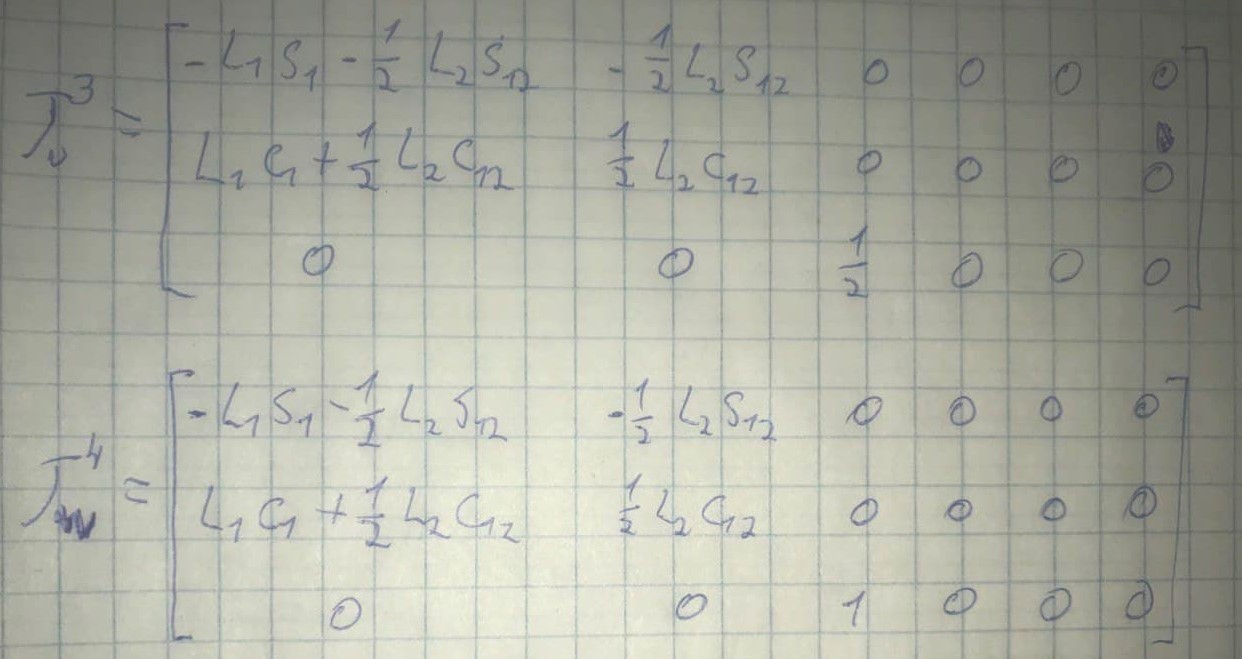 J_v^3 = [ -L_1 S_1 - 1/2 L_2 S_12   -1/2 L_2 S_12   0 0 0 0
L_1 C_1 + 1/2 L_2 C_12   1/2 L_2 C_12   0 0 0 0
0   0   1/2 0 0 0 ]
J_v^4 = [ -L_1 S_1 - 1/2 L_2 S_12   -1/2 L_2 S_12   0 0 0 0
L_1 C_1 + 1/2 L_2 C_12   1/2 L_2 C_12   0 0 0 0
0   0   1 0 0 0 ]